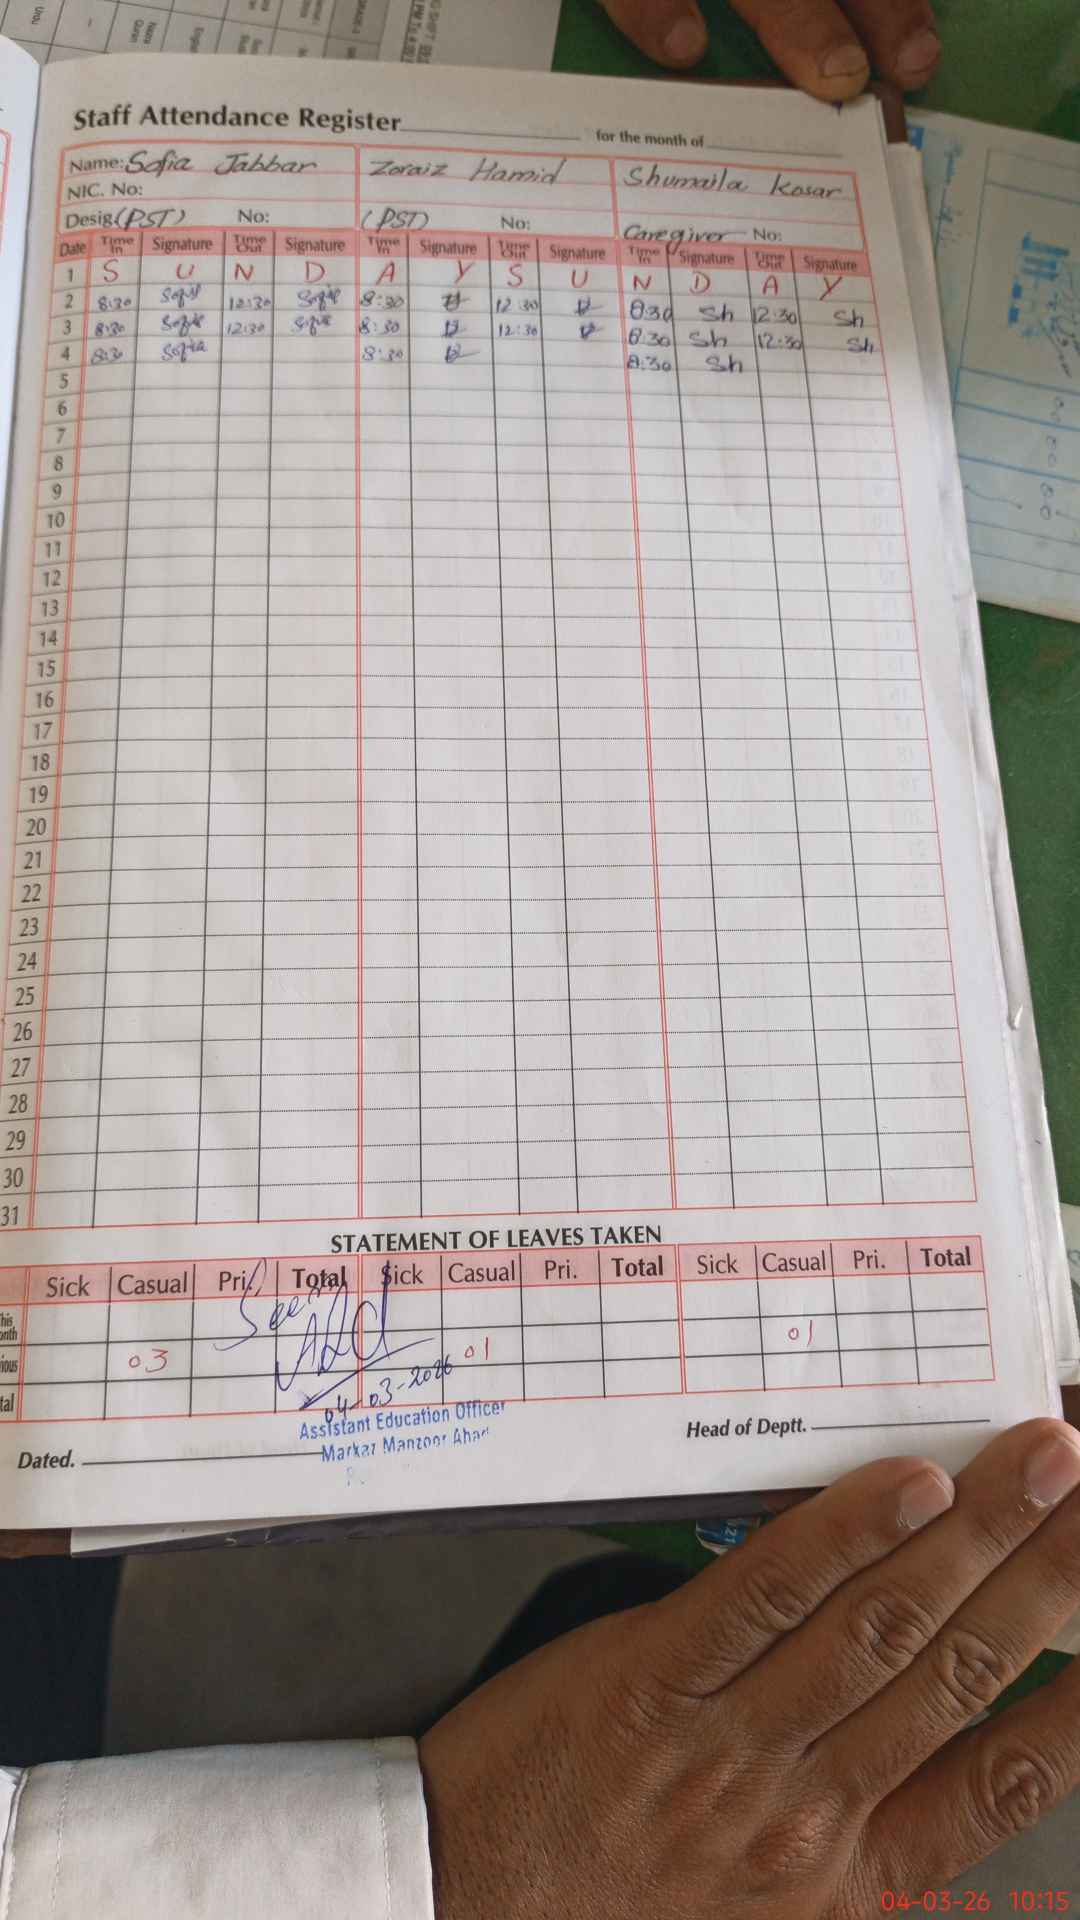 Staff Attendance Register for the month of
Name: Sofia Jabbar Zoraiz Hamid Shumaila Kosar
NIC. No:
Desig (PST) No: (PST) No: Caregiver No:
Date Time In Signature Time Out Signature Time In Signature Time Out Signature Time In Signature Time Out Signature
1 S U N D A Y S U N D A Y
2 8:30 Sofia 12:30 Sofia 8:30 12:30 8:30 Sh 12:30 Sh
3 8:30 Sofia 12:30 Sofia 8:30 12:30 8:30 Sh 12:30 Sh
4 8:30 Sofia 8:30 8:30 Sh
5
6
7
8
9
10
11
12
13
14
15
16
17
18
19
20
21
22
23
24
25
26
27
28
29
30
31
STATEMENT OF LEAVES TAKEN
Sick Casual Pri. Total Sick Casual Pri. Total Sick Casual Pri. Total
03 01 01
Seen
04-03-2026
Assistant Education Officer
Markaz Manzoor Abad
Dated. Head of Deptt.
04-03-26 10:15